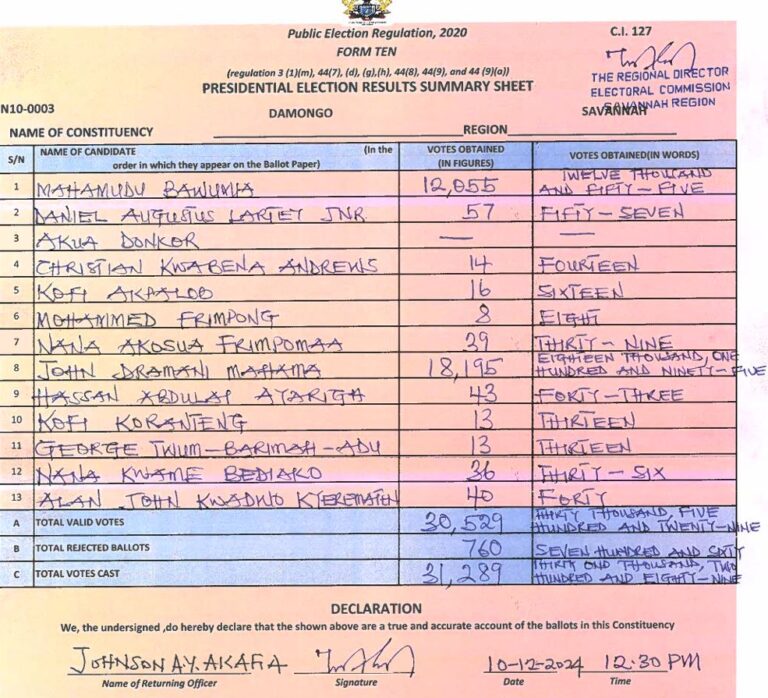 Public Election Regulation, 2020
C.I. 127
FORM TEN
(regulation 3 (1)(m), 44(7), (d), (g),(h), 44(8), 44(9), and 44 (9)(a))
PRESIDENTIAL ELECTION RESULTS SUMMARY SHEET
THE REGIONAL DIRECTOR
ELECTORAL COMMISSION
SAVANNAH REGION
N10-0003
DAMONGO SAVANNAH
NAME OF CONSTITUENCY REGION
S/N NAME OF CANDIDATE (In the order in which they appear on the Ballot Paper) VOTES OBTAINED (IN FIGURES) VOTES OBTAINED(IN WORDS)
1 MAHAMUDU BAWUMIA 12,055 TWELVE THOUSAND AND FIFTY-FIVE
2 DANIEL AUGUSTUS LARTEY JNR. 57 FIFTY-SEVEN
3 AKUA DONKOR — —
4 CHRISTIAN KWABENA ANDREWS 14 FOURTEEN
5 KOFI AKPALOO 16 SIXTEEN
6 MOHAMMED FRIMPONG 8 EIGHT
7 NANA AKOSUA FRIMPOMAA 39 THIRTY-NINE
8 JOHN DRAMANI MAHAMA 18,195 EIGHTEEN THOUSAND, ONE HUNDRED AND NINETY-FIVE
9 HASSAN ABDULAI AYARIGH 43 FORTY-THREE
10 KOFI KORANTENG 13 THIRTEEN
11 GEORGE TWUM-BARIMAH-ADU 13 THIRTEEN
12 NANA KWAME BEDIAKO 36 THIRTY-SIX
13 ALAN JOHN KWADWO KYEREMATEN 40 FORTY
A TOTAL VALID VOTES 30,529 THIRTY THOUSAND, FIVE HUNDRED AND TWENTY-NINE
B TOTAL REJECTED BALLOTS 760 SEVEN HUNDRED AND SIXTY
C TOTAL VOTES CAST 31,289 THIRTY ONE THOUSAND, TWO HUNDRED AND EIGHTY-NINE
DECLARATION
We, the undersigned ,do hereby declare that the shown above are a true and accurate account of the ballots in this Constituency
JOHNSON A.Y. AKAFIA 10-12-2024 12:30 PM
Name of Returning Officer Signature Date Time